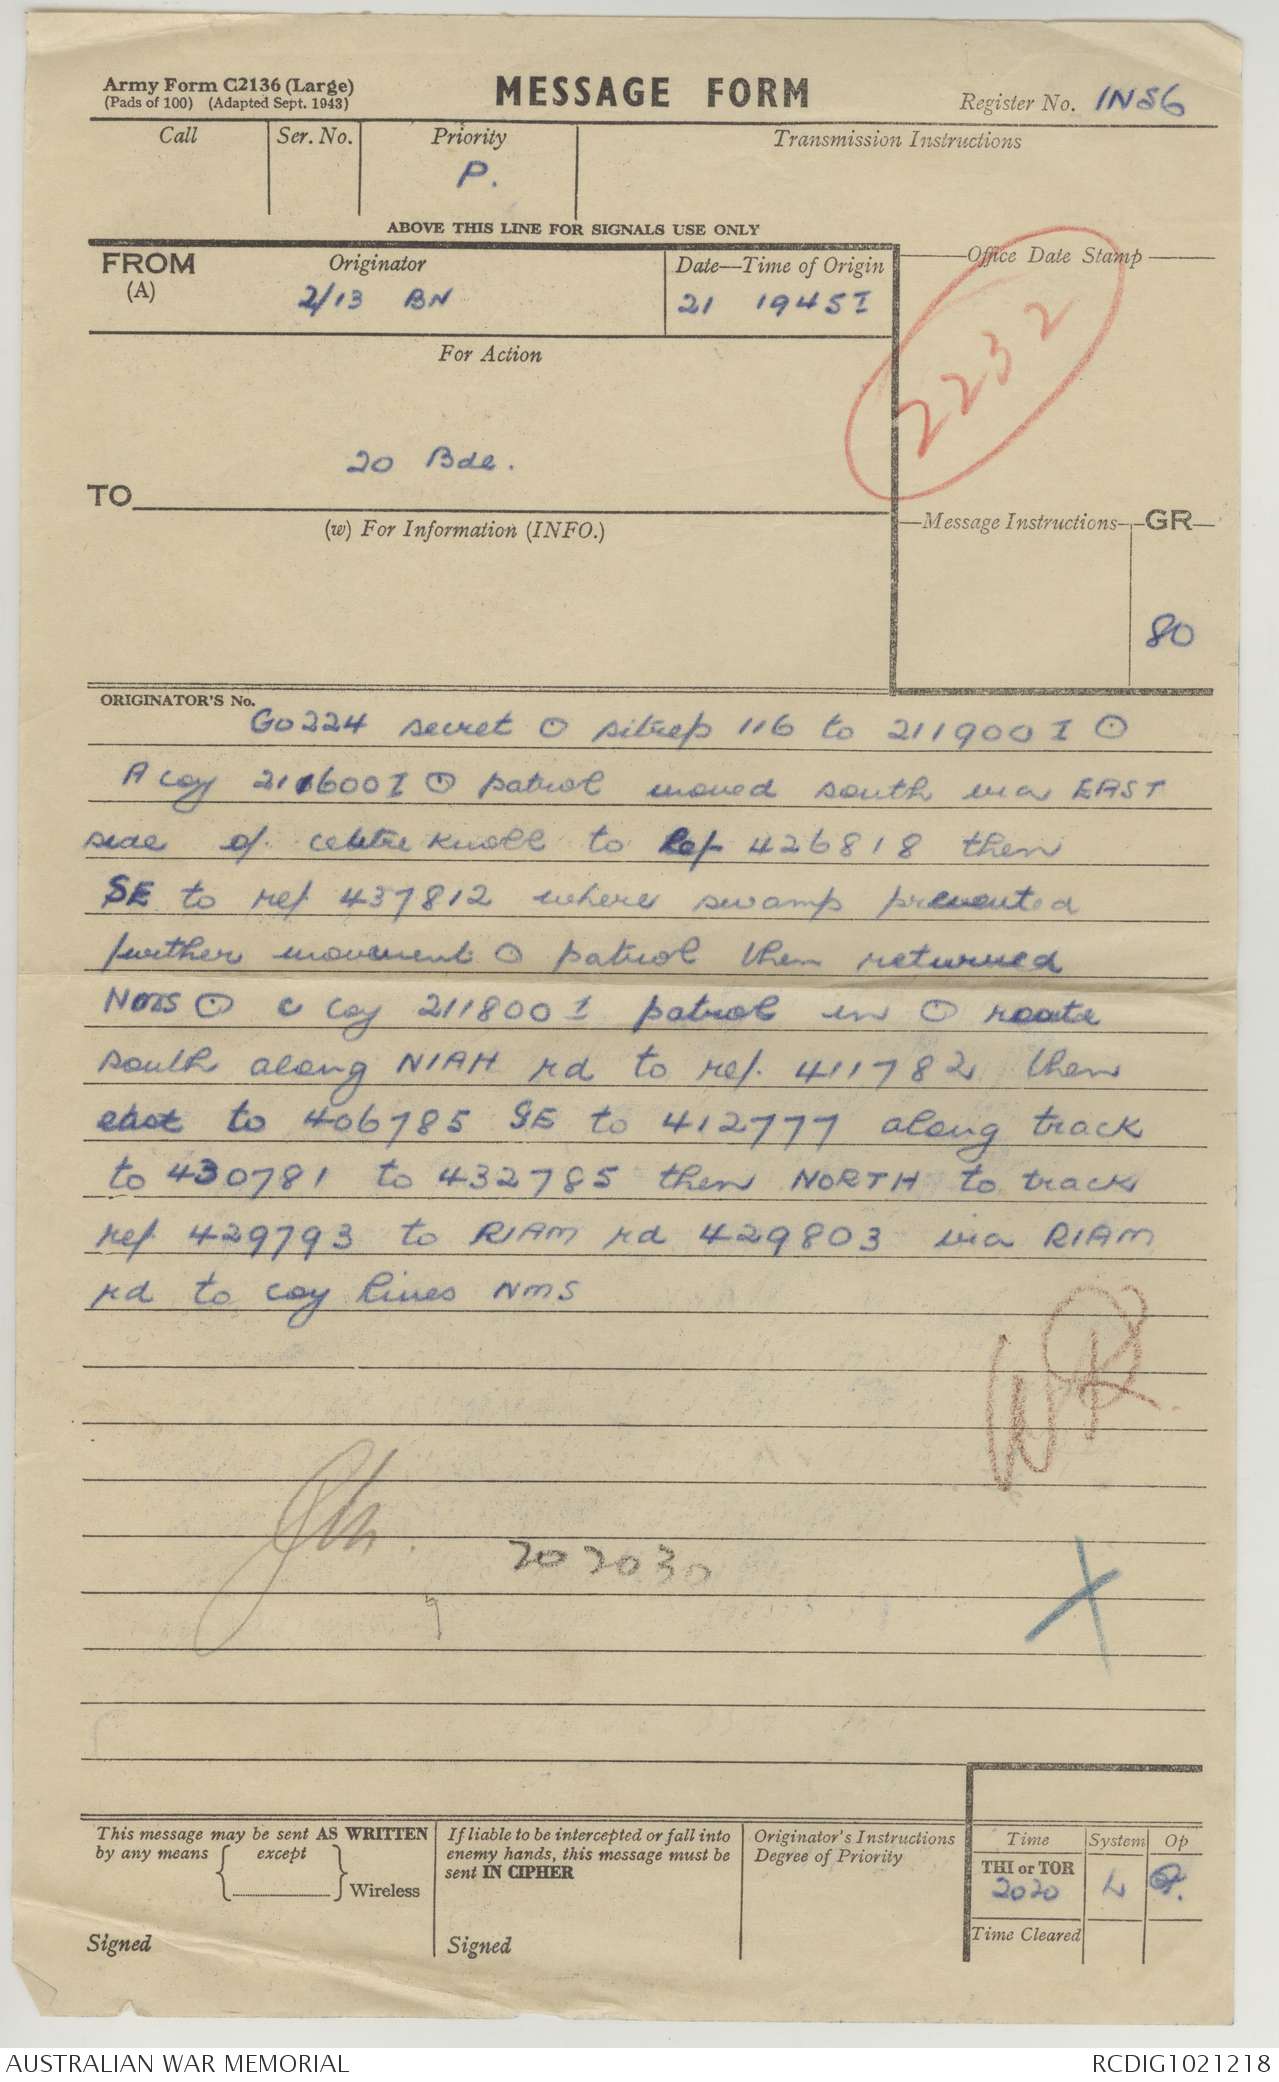 Army Form C2136 (Large)
(Pads of 100) (Adapted Sept. 1943)
MESSAGE FORM
Register No. IN86
Call
Ser. No.
Priority
P.
Transmission Instructions
ABOVE THIS LINE FOR SIGNALS USE ONLY
FROM
(A)
Originator
2/13 BN
Date—Time of Origin
21 1945I
Office Date Stamp
2232
For Action
20 Bde.
TO
(w) For Information (INFO.)
Message Instructions
GR
80
ORIGINATOR'S No.
GO224 secret ⊙ sitrep 116 to 211900 I ⊙
A coy 211600I ⊙ patrol moved south via EAST
side of centre knoll to ref 426818 then
SE to ref 437812 where swamp prevented
further movement ⊙ patrol then returned
NMS ⊙ C coy 211800 I patrol in ⊙ route
south along NIAH rd to ref. 411782 then
east to 406785 SE to 412777 along track
to 430781 to 432785 then NORTH to track
ref 429793 to RIAM rd 429803 via RIAM
rd to coy lines NMS
WR
202030
This message may be sent AS WRITTEN
by any means { except } Wireless
Signed
If liable to be intercepted or fall into
enemy hands, this message must be
sent IN CIPHER
Signed
Originator's Instructions
Degree of Priority
Time
System
Op
THI or TOR
2020
L
Time Cleared
AUSTRALIAN WAR MEMORIAL
RCDIG1021218